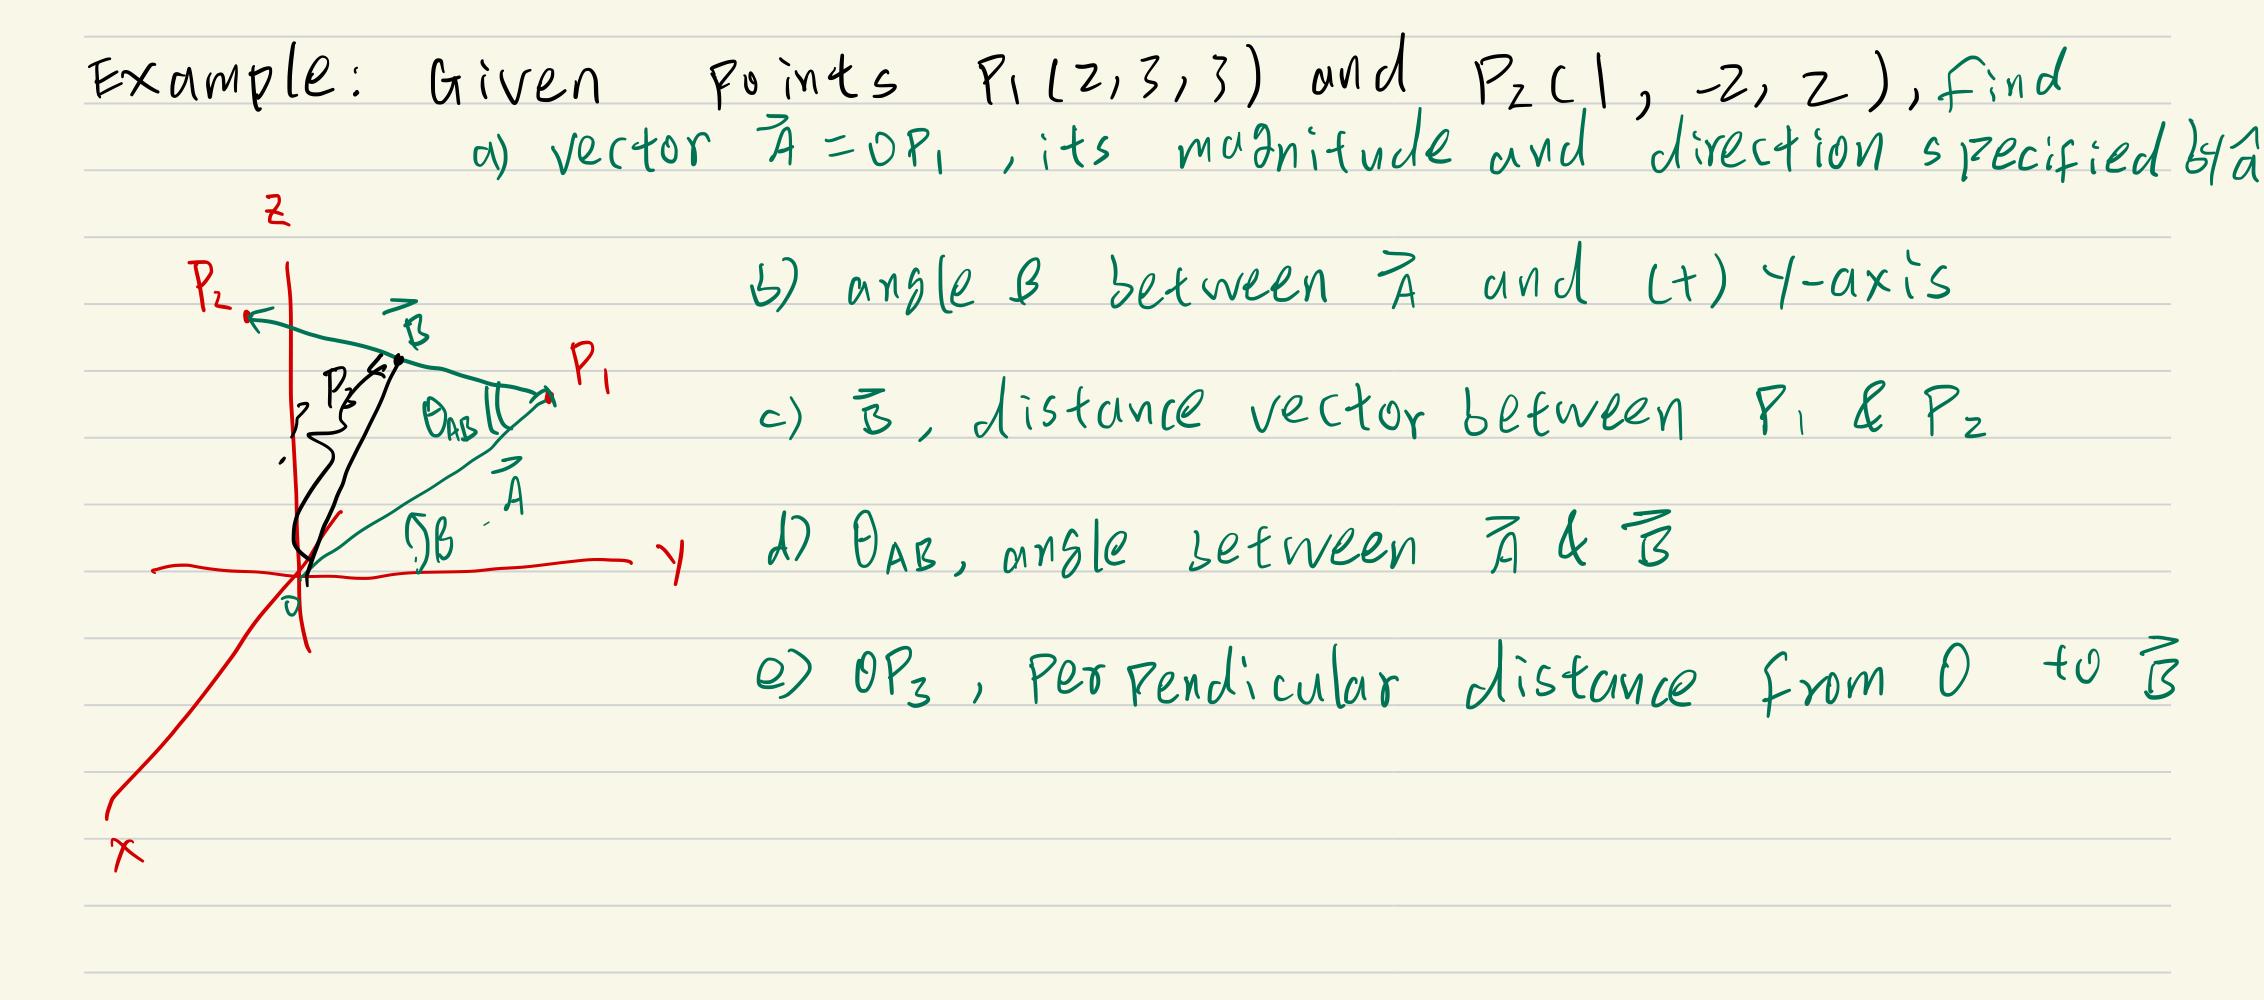 Example: Given points P₁(2,3,3) and P₂(1,-2,2), find
a) vector A⃗ = OP₁, its magnitude and direction specified by â
z
P₂
B⃗
b) angle β between A⃗ and (+) y-axis
P₁
P₃
θAB
c) B⃗, distance vector between P₁ & P₂
A⃗
β
y
d) θAB, angle between A⃗ & B⃗
O
e) OP₃, perpendicular distance from O to B⃗
x